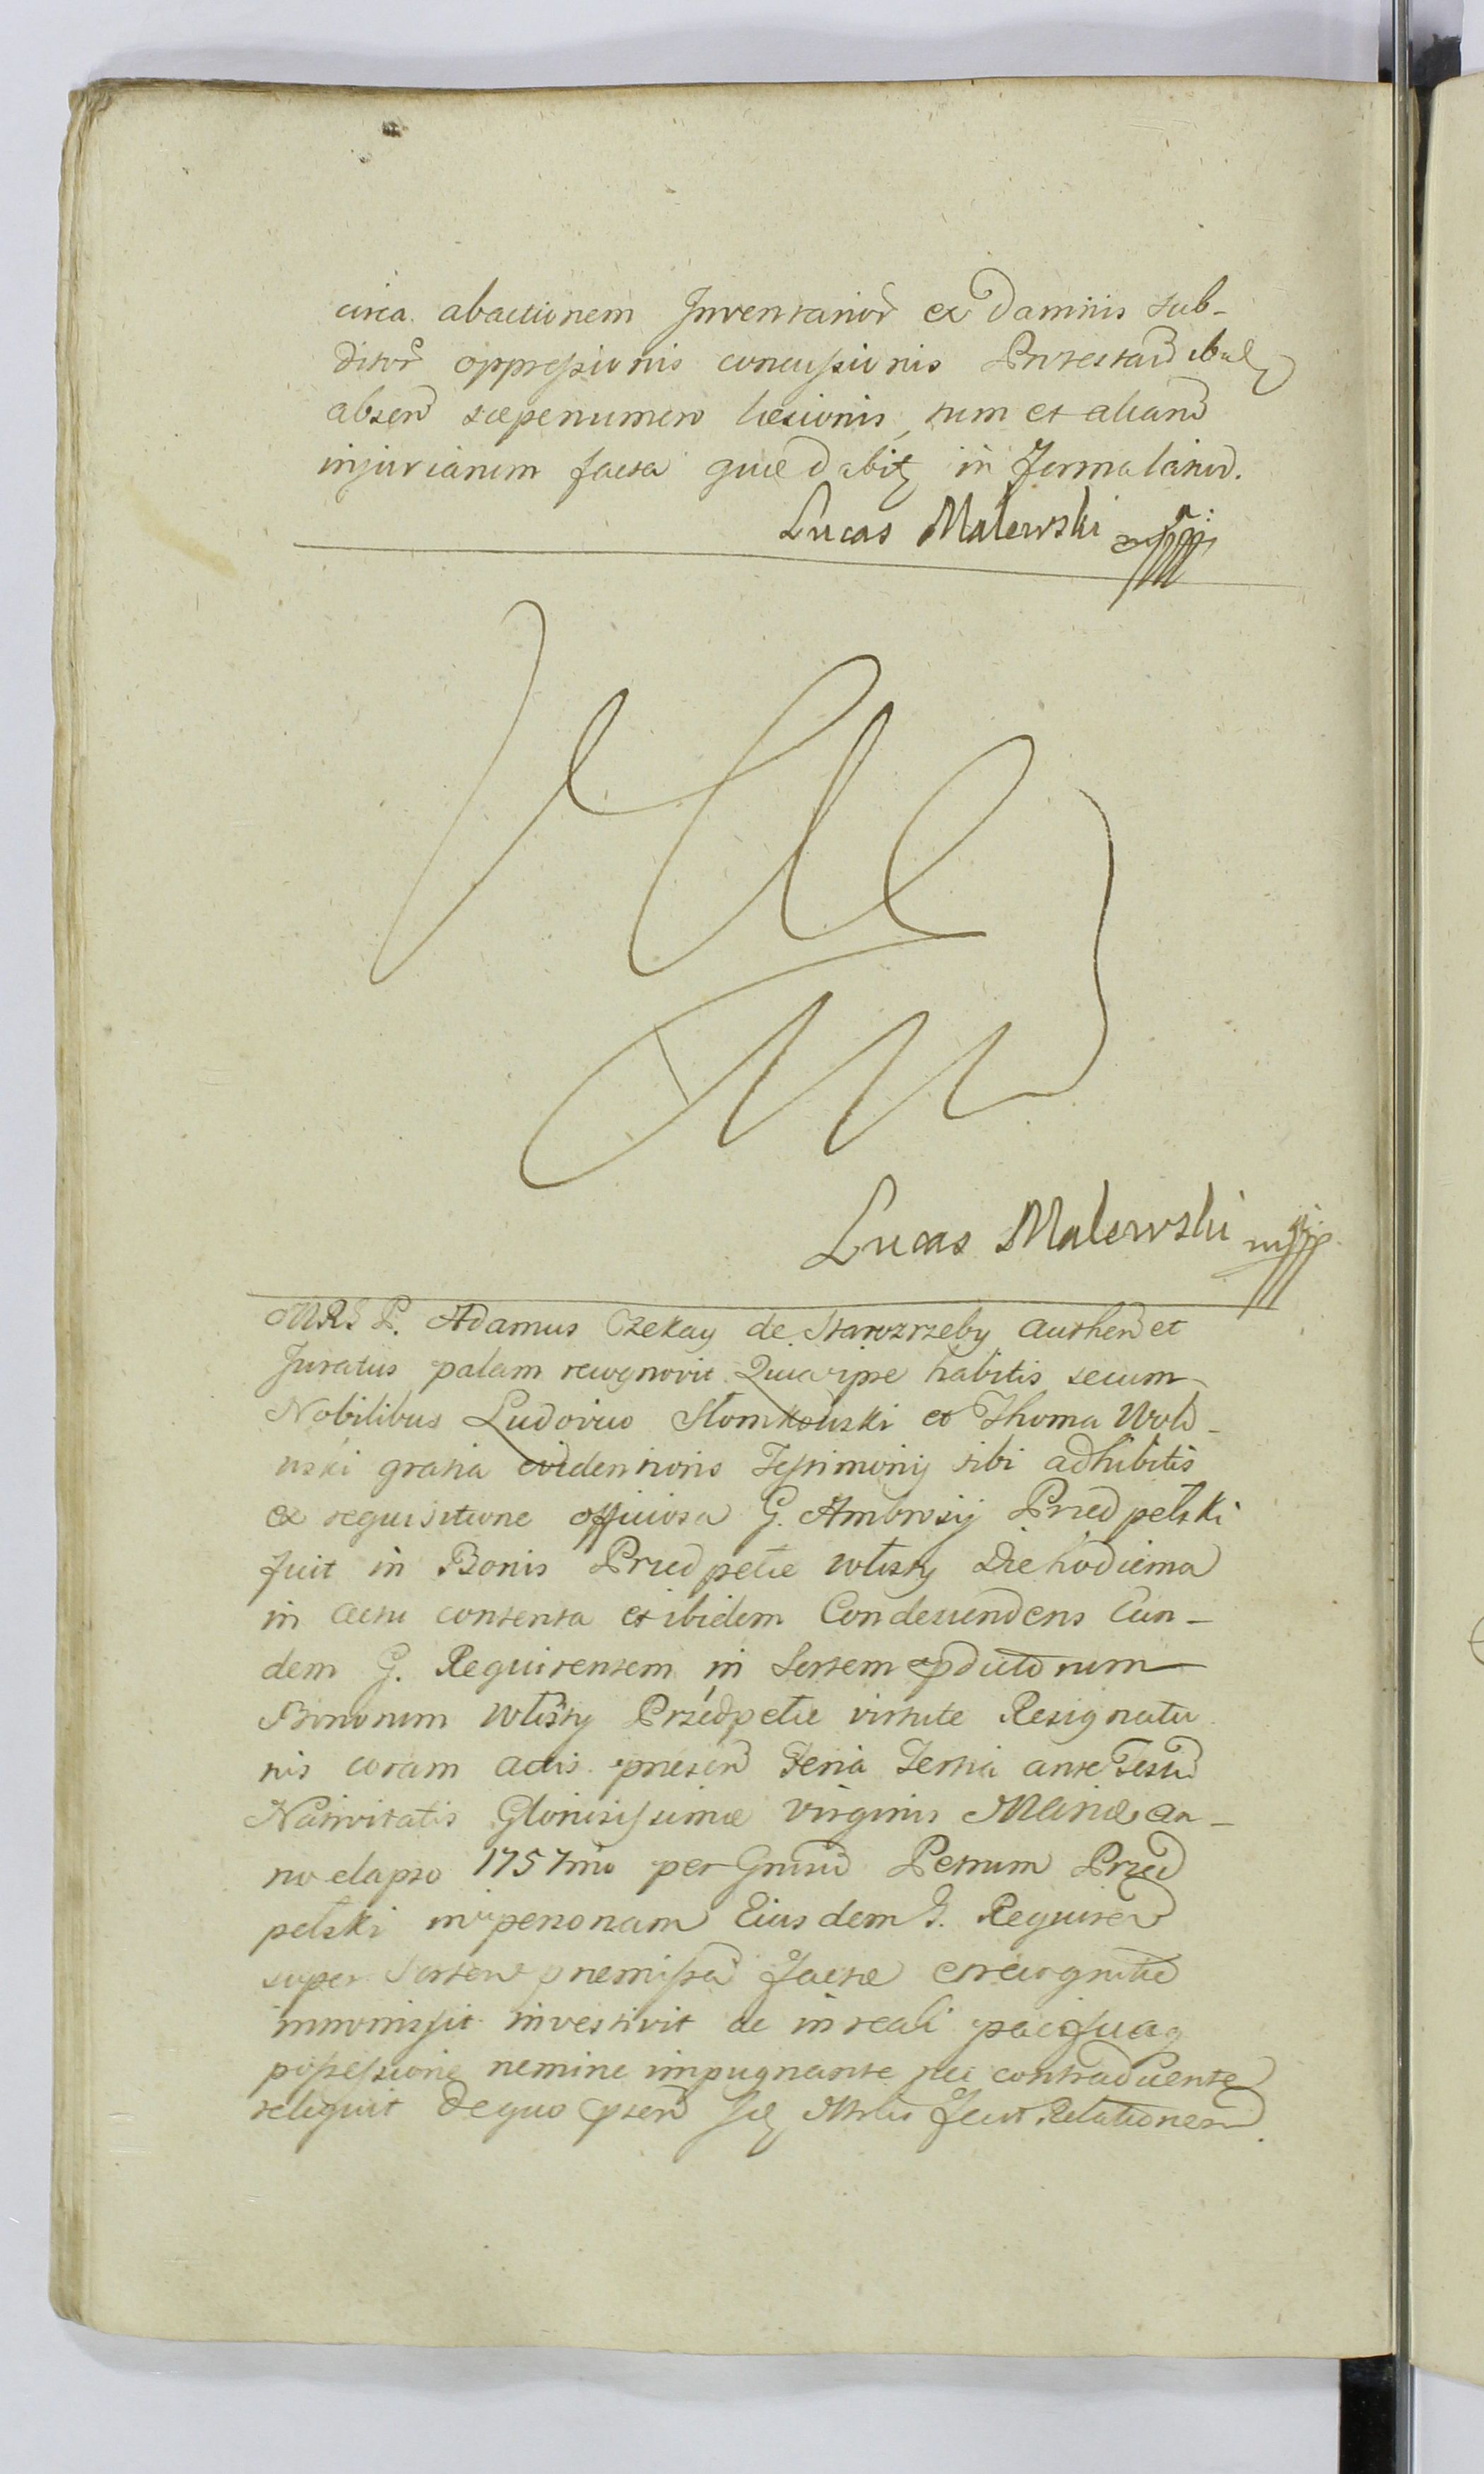 circa abactionem Inventarior ex Damnis sub-
ditor oppressionis concussionis Protestand
absen saepenumero laesionis, tum et aliand
injuriarum facta quae dabit in Termo latius.
Lucas Malewski mppa
Lucas Malewski mpp
MRS P. Adamus Czekay de Starozrzeby authen et
Juratus palam recognovit Quia ipse habitis secum
Nobilibus Ludovico Słomkowski et Thoma Wol-
uski gratia evidentioris Testimonij sibi adhibitis
ex requisitione officiosa G. Ambrosij Przedpełski
fuit in Bonis Przedpełcie Włisty Die hodierna
in actu contenta et ibidem Condescendens Eun-
dem G. Requirentem in Sortem
Bonorum Włisty Przedpełcie virtute Resignatio
nis coram actis presen Feria Tertia ante Festu
Nativitatis Gloriosissimae Virginis Mariae an-
no elapso 1757mo per Gnrsu Petrum Przed
pełski in personam Eiusdem G. Requiren
super Sortem premissa factae et recognitae
intromissit investivit ac in reali pacificaq
possessione nemine impugnante nec contradicente
reliquit de quo psen suę Mrlis fecit Relationem.